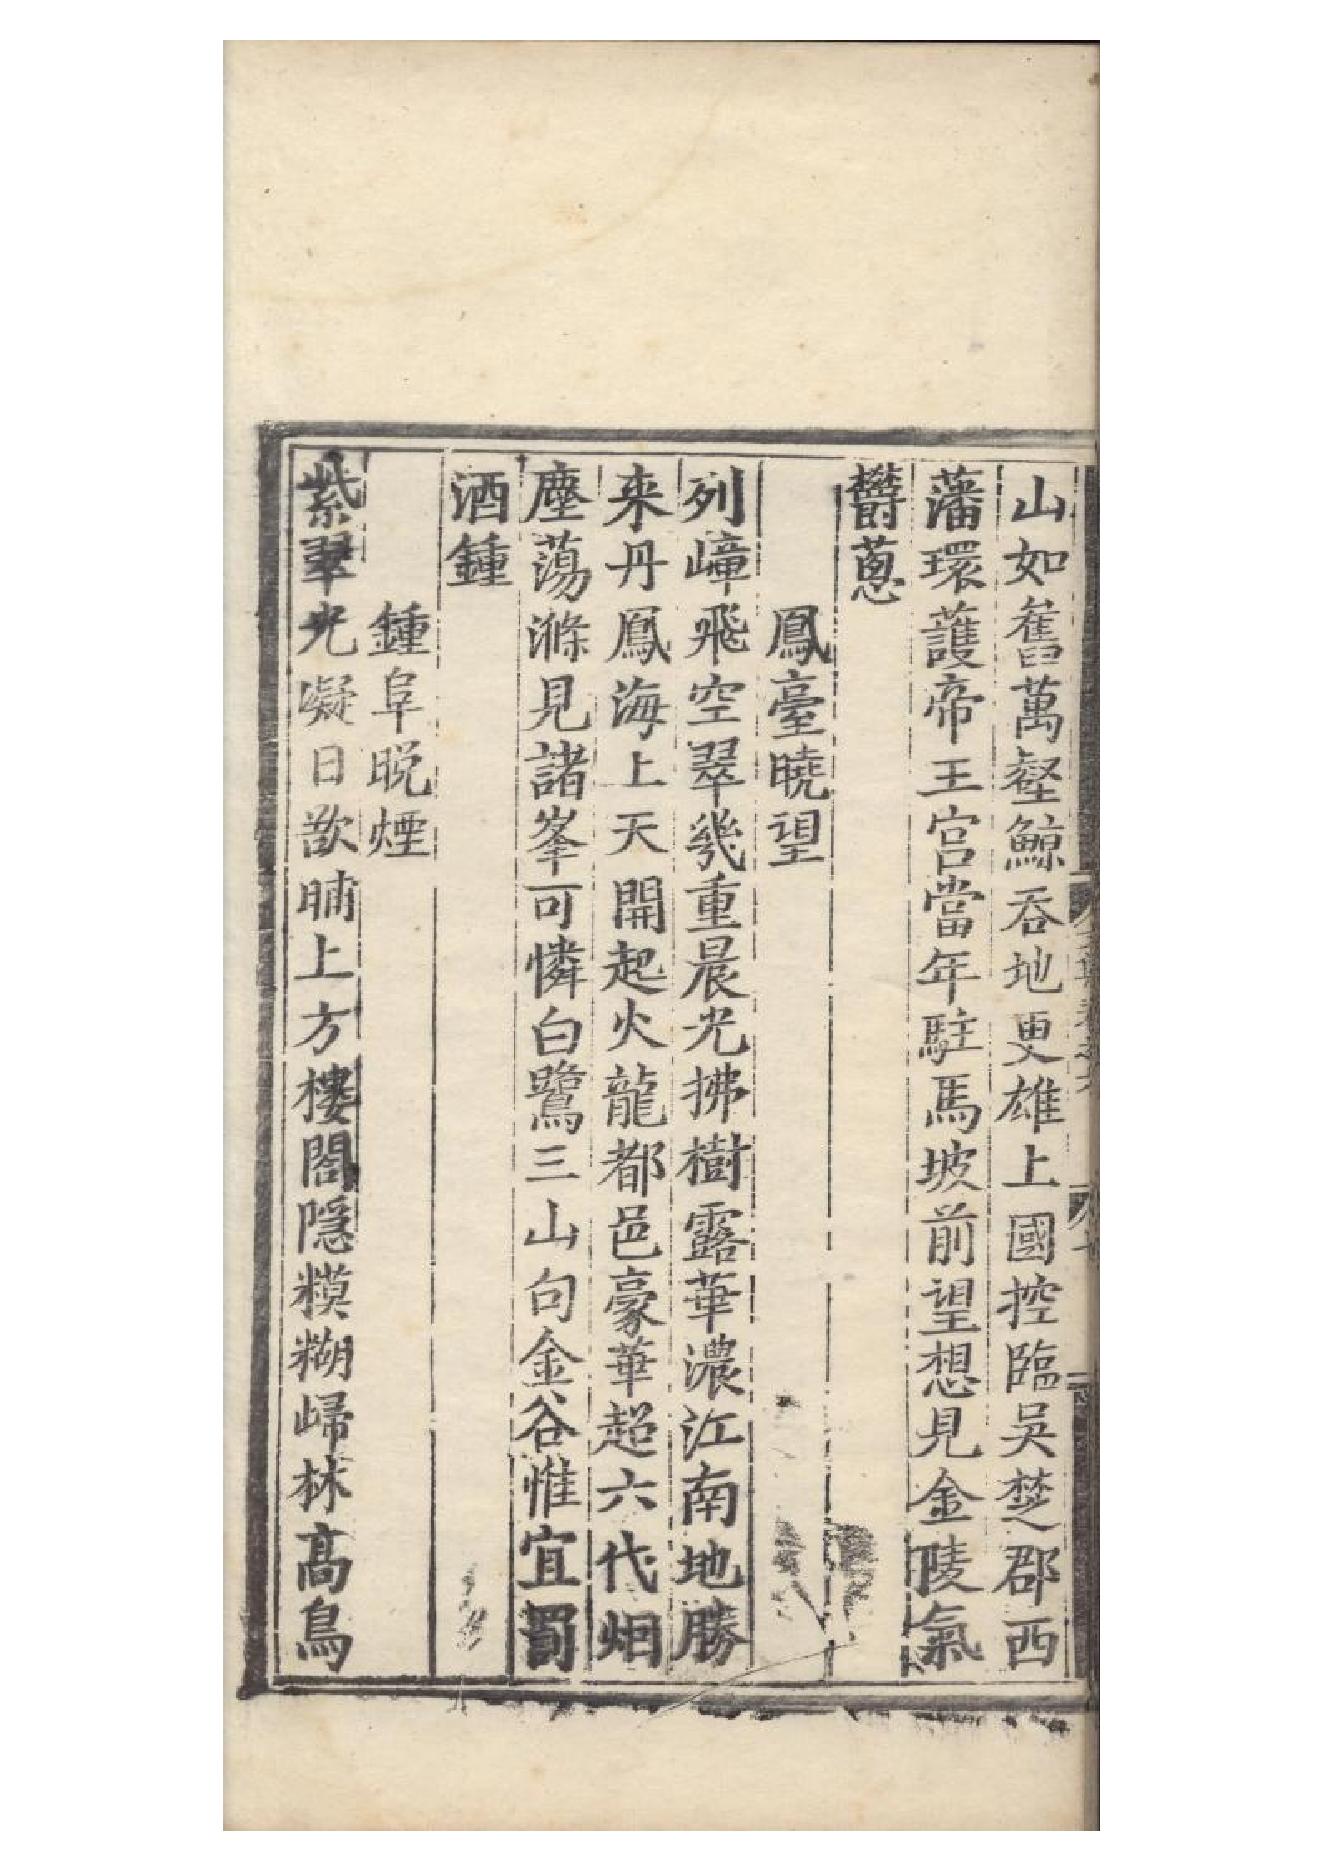 山如舊萬壑鯨吞地更雄上國控臨吳楚郡西
藩環護帝王宮當年駐馬坡前望想見金陵氣
欝蔥
鳳臺曉望
列嶂飛空翠幾重晨光拂樹露華濃江南地勝
來丹鳳海上天開起火龍都邑豪華超六代烟
塵蕩滌見諸峯可憐白鷺三山句金谷惟宜罰
酒鍾
鍾阜晚煙
紫翠光凝日欲晡上方樓閣隱糢糊歸林高鳥